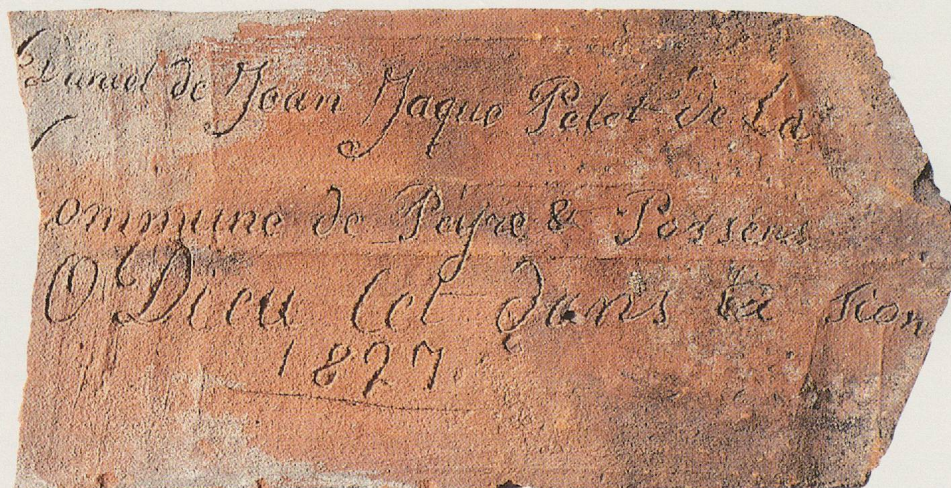 Daniel de Jean Jaque Pelet de La
ommune de Peyre & Possens
O Dieu Cet dans ta sion
1827